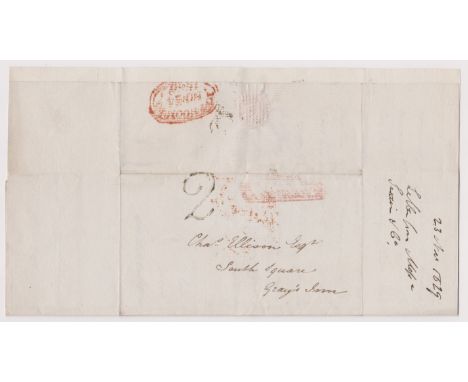 2
Chas. Ellison Esqr
South Square
Gray's Inn
23 Nov 1829
Letter from Messrs
& Co.